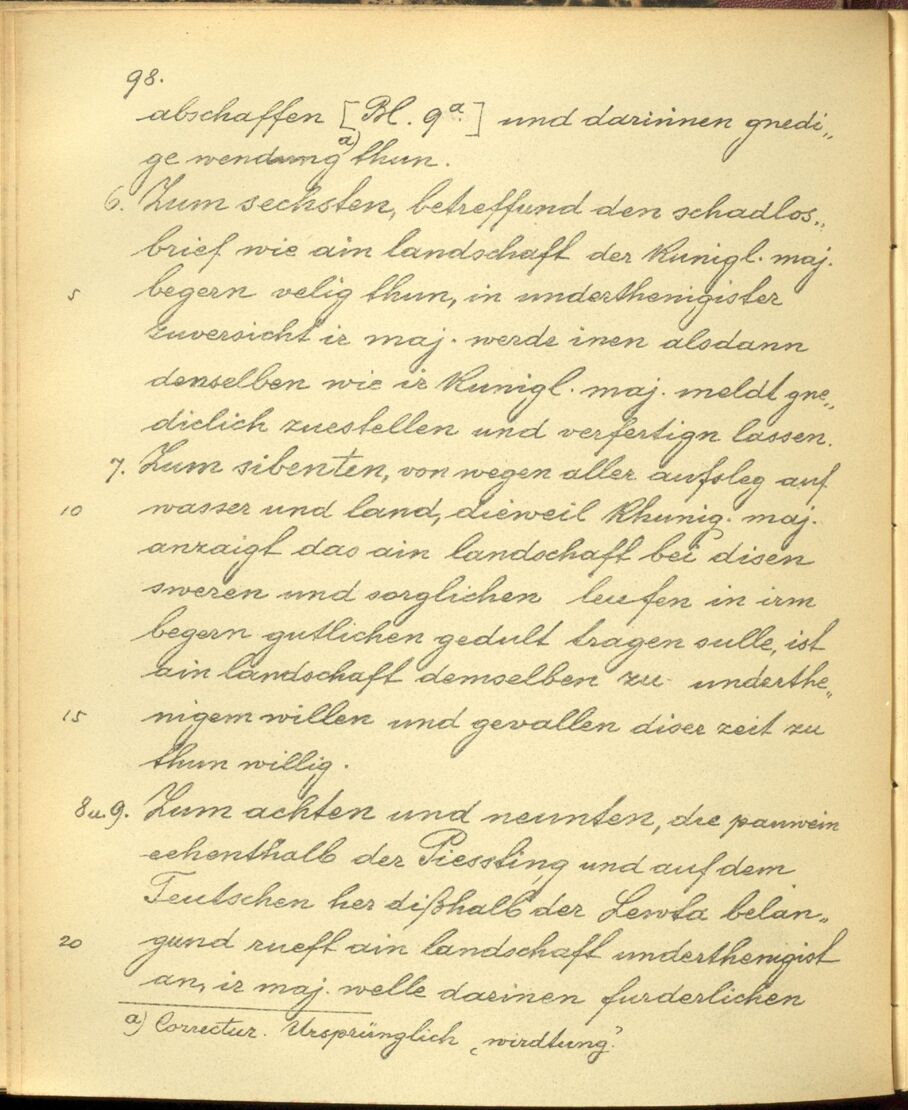 98.
abschaffen [Bl. 9a.] und darinnen gnedi„
ge wendung a) thun.
6. Zum sechsten, betreffund den schadlos„
brief wie ain landschaft der Kunigl. maj.
5 begern velig thun, in underthenigister
zuversicht ir maj. werde inen alsdann
denselben wie ir Kunigl. maj. meldt gne„
diclich zuestellen und verfertign lassen.
7. Zum sibenten, von wegen aller aufsleg auf
10 wasser und land, dieweil Khunig. maj.
anzaigt das ain landschaft bei disen
sweren und sorglichen leufen in irm
begern gutlichen gedult tragen sulle, ist
ain landschaft demselben zu underthe„
15 nigem willen und gevallen diser zeit zu
thun willig.
8 u. 9. Zum achten und neunten, die pauwein
enhenthalb der Piessting und auf dem
Teutschen her dißhalb der Lewta belan„
20 gund rueft ain landschaft underthenigist
an, ir maj. welle darinen furderlichen
a) Correctur. Ursprünglich ‚wirdtung‘.